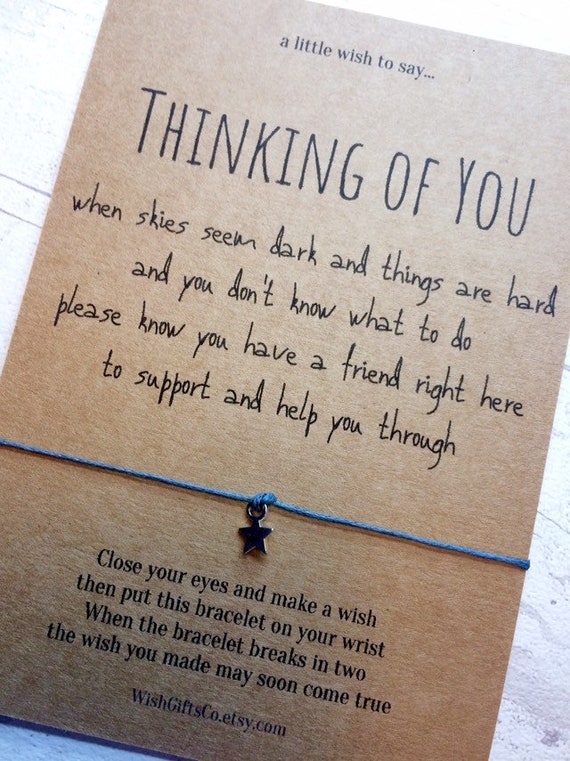 a little wish to say...
THINKING OF YOU
when skies seem dark and things are hard
and you don't know what to do
please know you have a friend right here
to support and help you through
Close your eyes and make a wish
then put this bracelet on your wrist
When the bracelet breaks in two
the wish you made may soon come true
WishGiftsCo.etsy.com